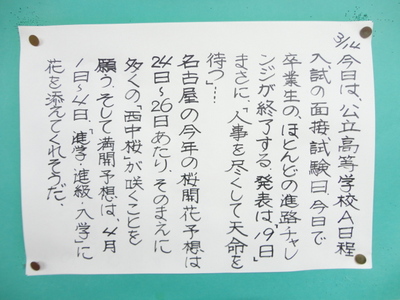 3/14 今日は、公立高等学校A日程
入試の面接試験日、今日で
卒業生の、ほとんどの進路チャレ
ンジが終了する。発表は、「19日」
まさに、「人事を尽くして天命を
待つ」…
名古屋の今年の桜開花予想は
24日～26日あたり、そのまえに
多くの、「西中桜」が咲くことを
願う。そして満開予想は、4月
1日～4日、「進学・進級・入学」に
花を添えてくれそうだ。